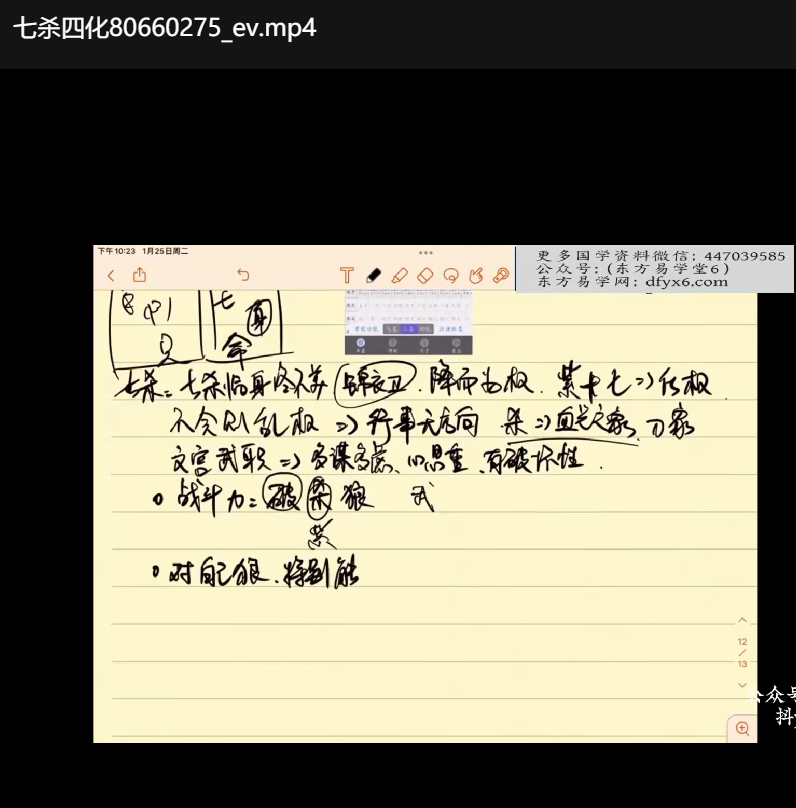 七杀四化80660275_ev.mp4
下午10:23 1月25日周二
更多国学资料微信：447039585
公众号：(东方易学堂6)
东方易学网：dfyx6.com
七
身
命
七杀：七杀临身终不美 锦衣卫.降而为权.紫+七=>化权
不会则乱权 => 行事无方向 杀=> 刀家
文官武职 => 多谋多虑、心思重、有破坏性.
战斗力：破 杀 狼 武
紫
对自己狠、特别能
12
/
13
公众号
抖